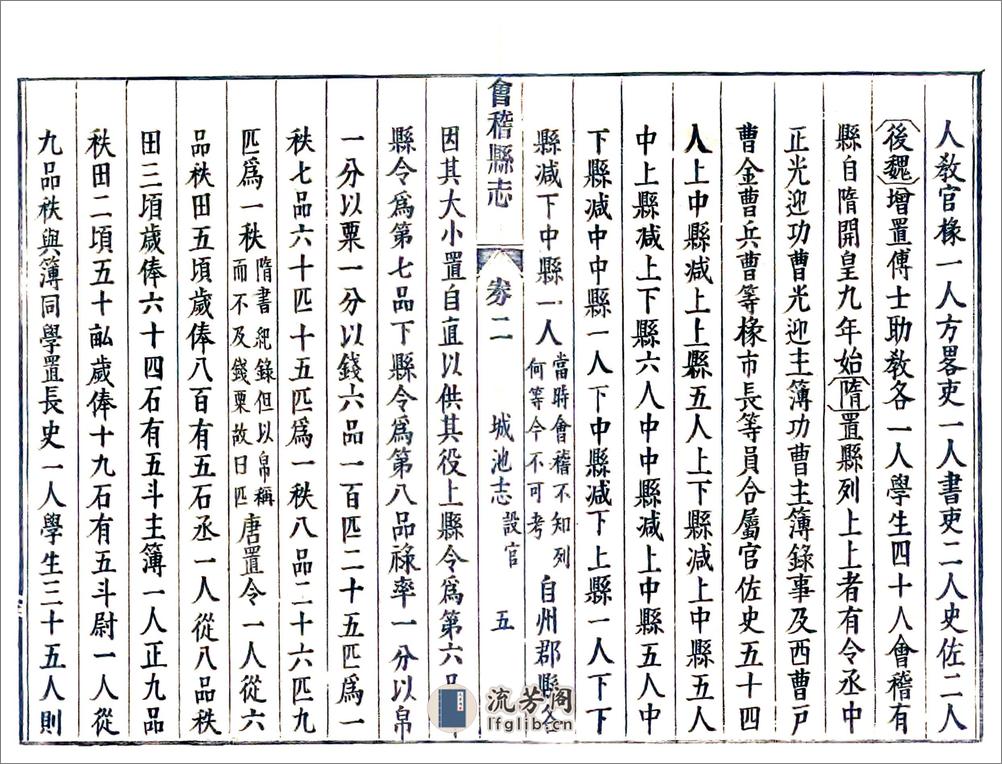 人教官椽一人方畧吏一人書吏二人史佐二人
後魏增置傅士助教各一人學生四十人會稽有
縣自隋開皇九年始隋置縣列上上者有令丞中
正光迎功曹光迎主簿功曹主簿錄事及西曹戸
曹金曹兵曹等椽市長等員合屬官佐史五十四
人上中縣减上上縣五人上下縣减上中縣五人
中上縣减上下縣六人中中縣减上中縣五人中
下縣减中中縣一人下中縣减下上縣一人下下
縣减下中縣一人當時會稽不知列何等今不可考自州郡縣各
會稽縣志 卷二 城池志 設官 五
因其大小置自直以供其役上縣令爲第六品
縣令爲第七品下縣令爲第八品祿率一分以帛
一分以粟一分以錢六品一百匹二十五匹爲一
秩七品六十匹十五匹爲一秩八品二十六匹九
匹爲一秩隋書紀錄但以帛稱而不及錢粟故曰匹唐置令一人從六
品秩田五頃歲俸八百有五石丞一人從八品秩
田三頃歲俸六十四石有五斗主簿一人正九品
秩田二頃五十畝歲俸十九石有五斗尉一人從
九品秩與簿同學置長史一人學生三十五人則
流芳阁
lfglib.cn